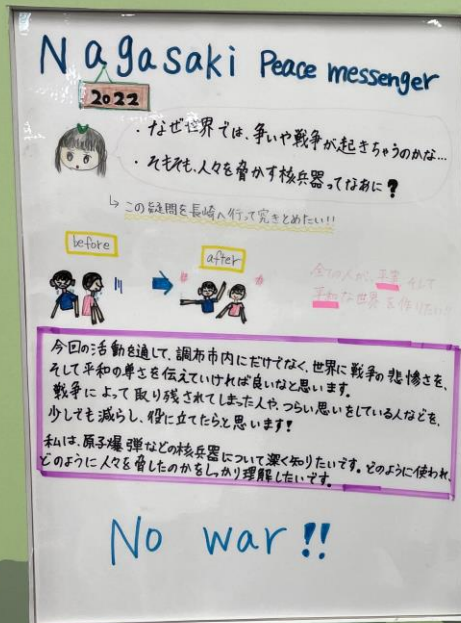 Nagasaki Peace messenger
2022
・なぜ世界では、争いや戦争が起きちゃうのかな…
・そもそも、人々を脅かす核兵器ってなあに?
↳この疑問を長崎へ行って究きとめたい!!
before
after
全ての人が、平等 そして
平和な世界を作りたい
今回の活動を通して、調布市内にだけでなく、世界に戦争の悲惨さを、
そして平和の尊さを伝えていければ良いなと思います。
戦争によって取り残されてしまった人や、つらい思いをしている人などを、
少しでも減らし、役に立てたらと思います!
私は、原子爆弾などの核兵器について深く知りたいです。どのように使われ、
どのように人々を脅したのかをしっかり理解したいです。
No war!!